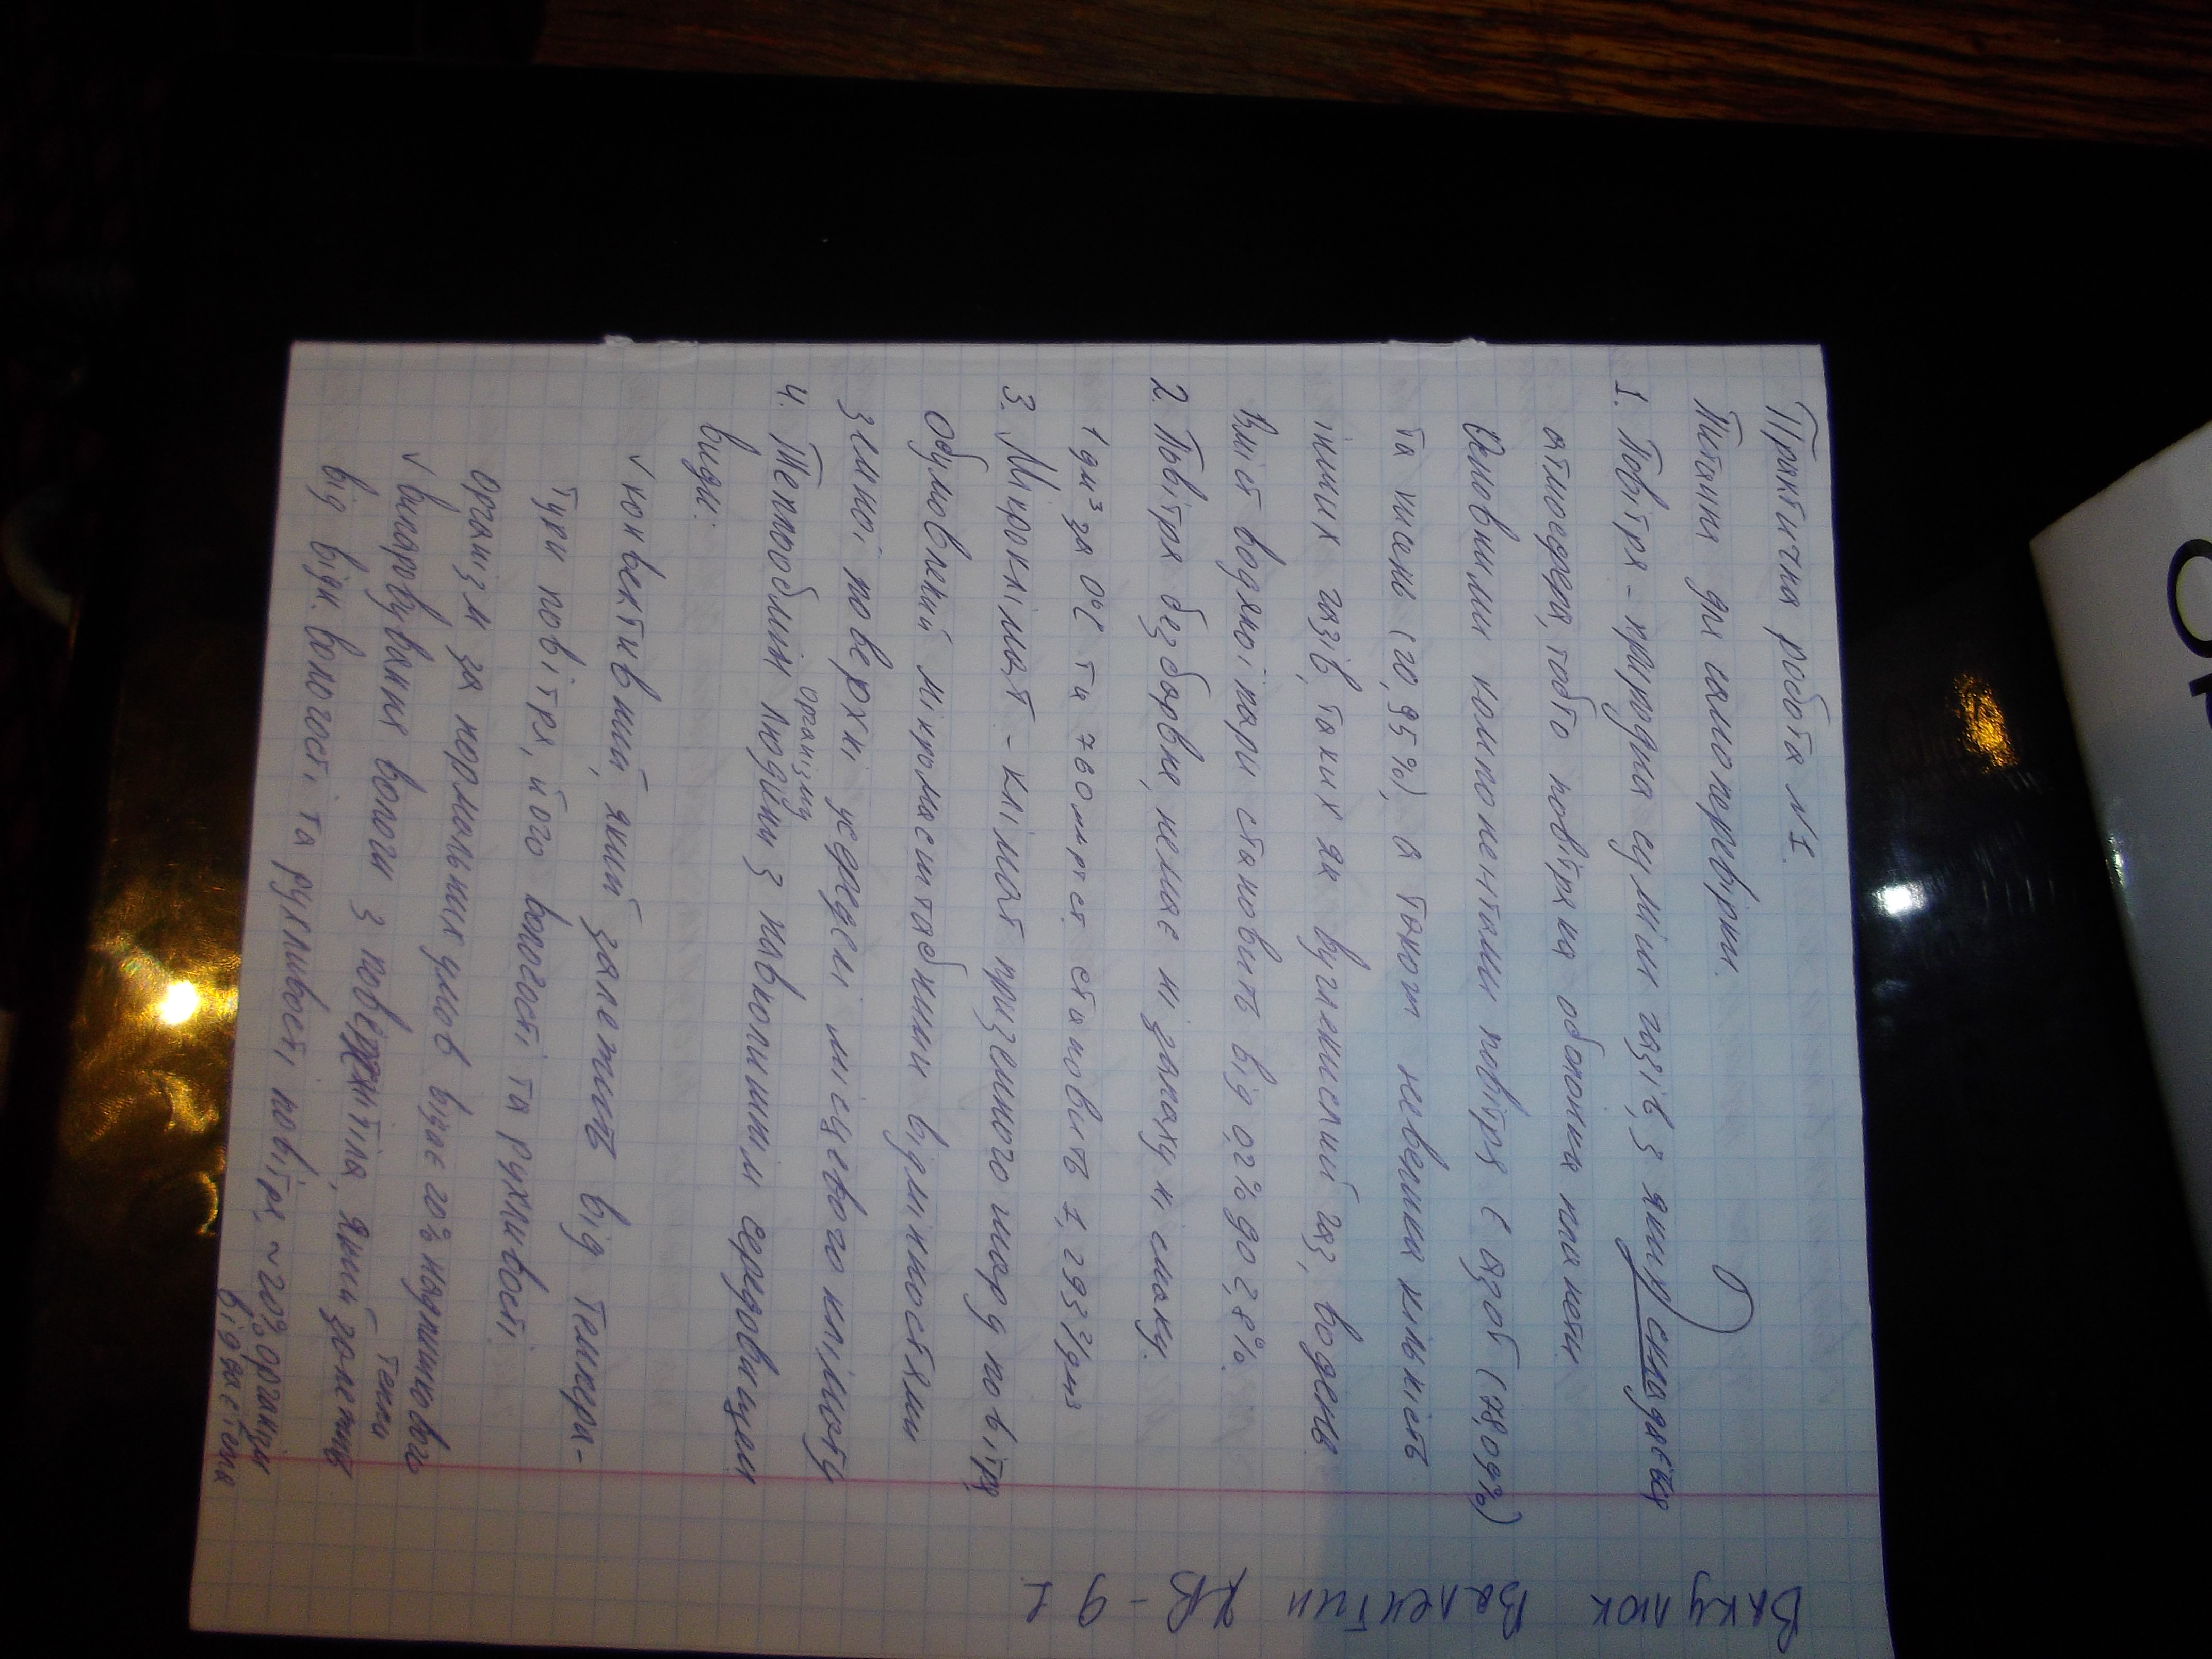 Практична робота №1.
Питання для самоперевірки.
1. Повітря - природна суміш газів, з яких складається
атмосфера, тобто повітряна оболонка планети.
Основними компонентами повітря є азот (78,09%)
та кисень (20,95%), а також невелика кількість
інших газів, таких як вуглекислий газ, водень
Вміст водяної пари становить від 0,2% до 2,8%.
2. Повітря безбарвне, немає ні запаху ні смаку.
1дм³ за 0°С та 760мм рт ст становить 1,293г/дм³
3. Мікроклімат - клімат приземного шару повітря
обумовлений мікромасштабними відмінностями
земної поверхні усередені місцевого клімату
4. Теплообмін організму людини з навколишнім середовищем
види:
✓ конвективний, який залежить від темпера-
тури повітря, його вологості та рухливості.
організм за нормальних умов віддає 20% надлишкового тепла
✓ випаровування вологи з поверхні тіла, який залежить
від відн. вологості та рухливості повітря, ~20% організм
віддає тепла
Вакулюк Валентин ХВ-91